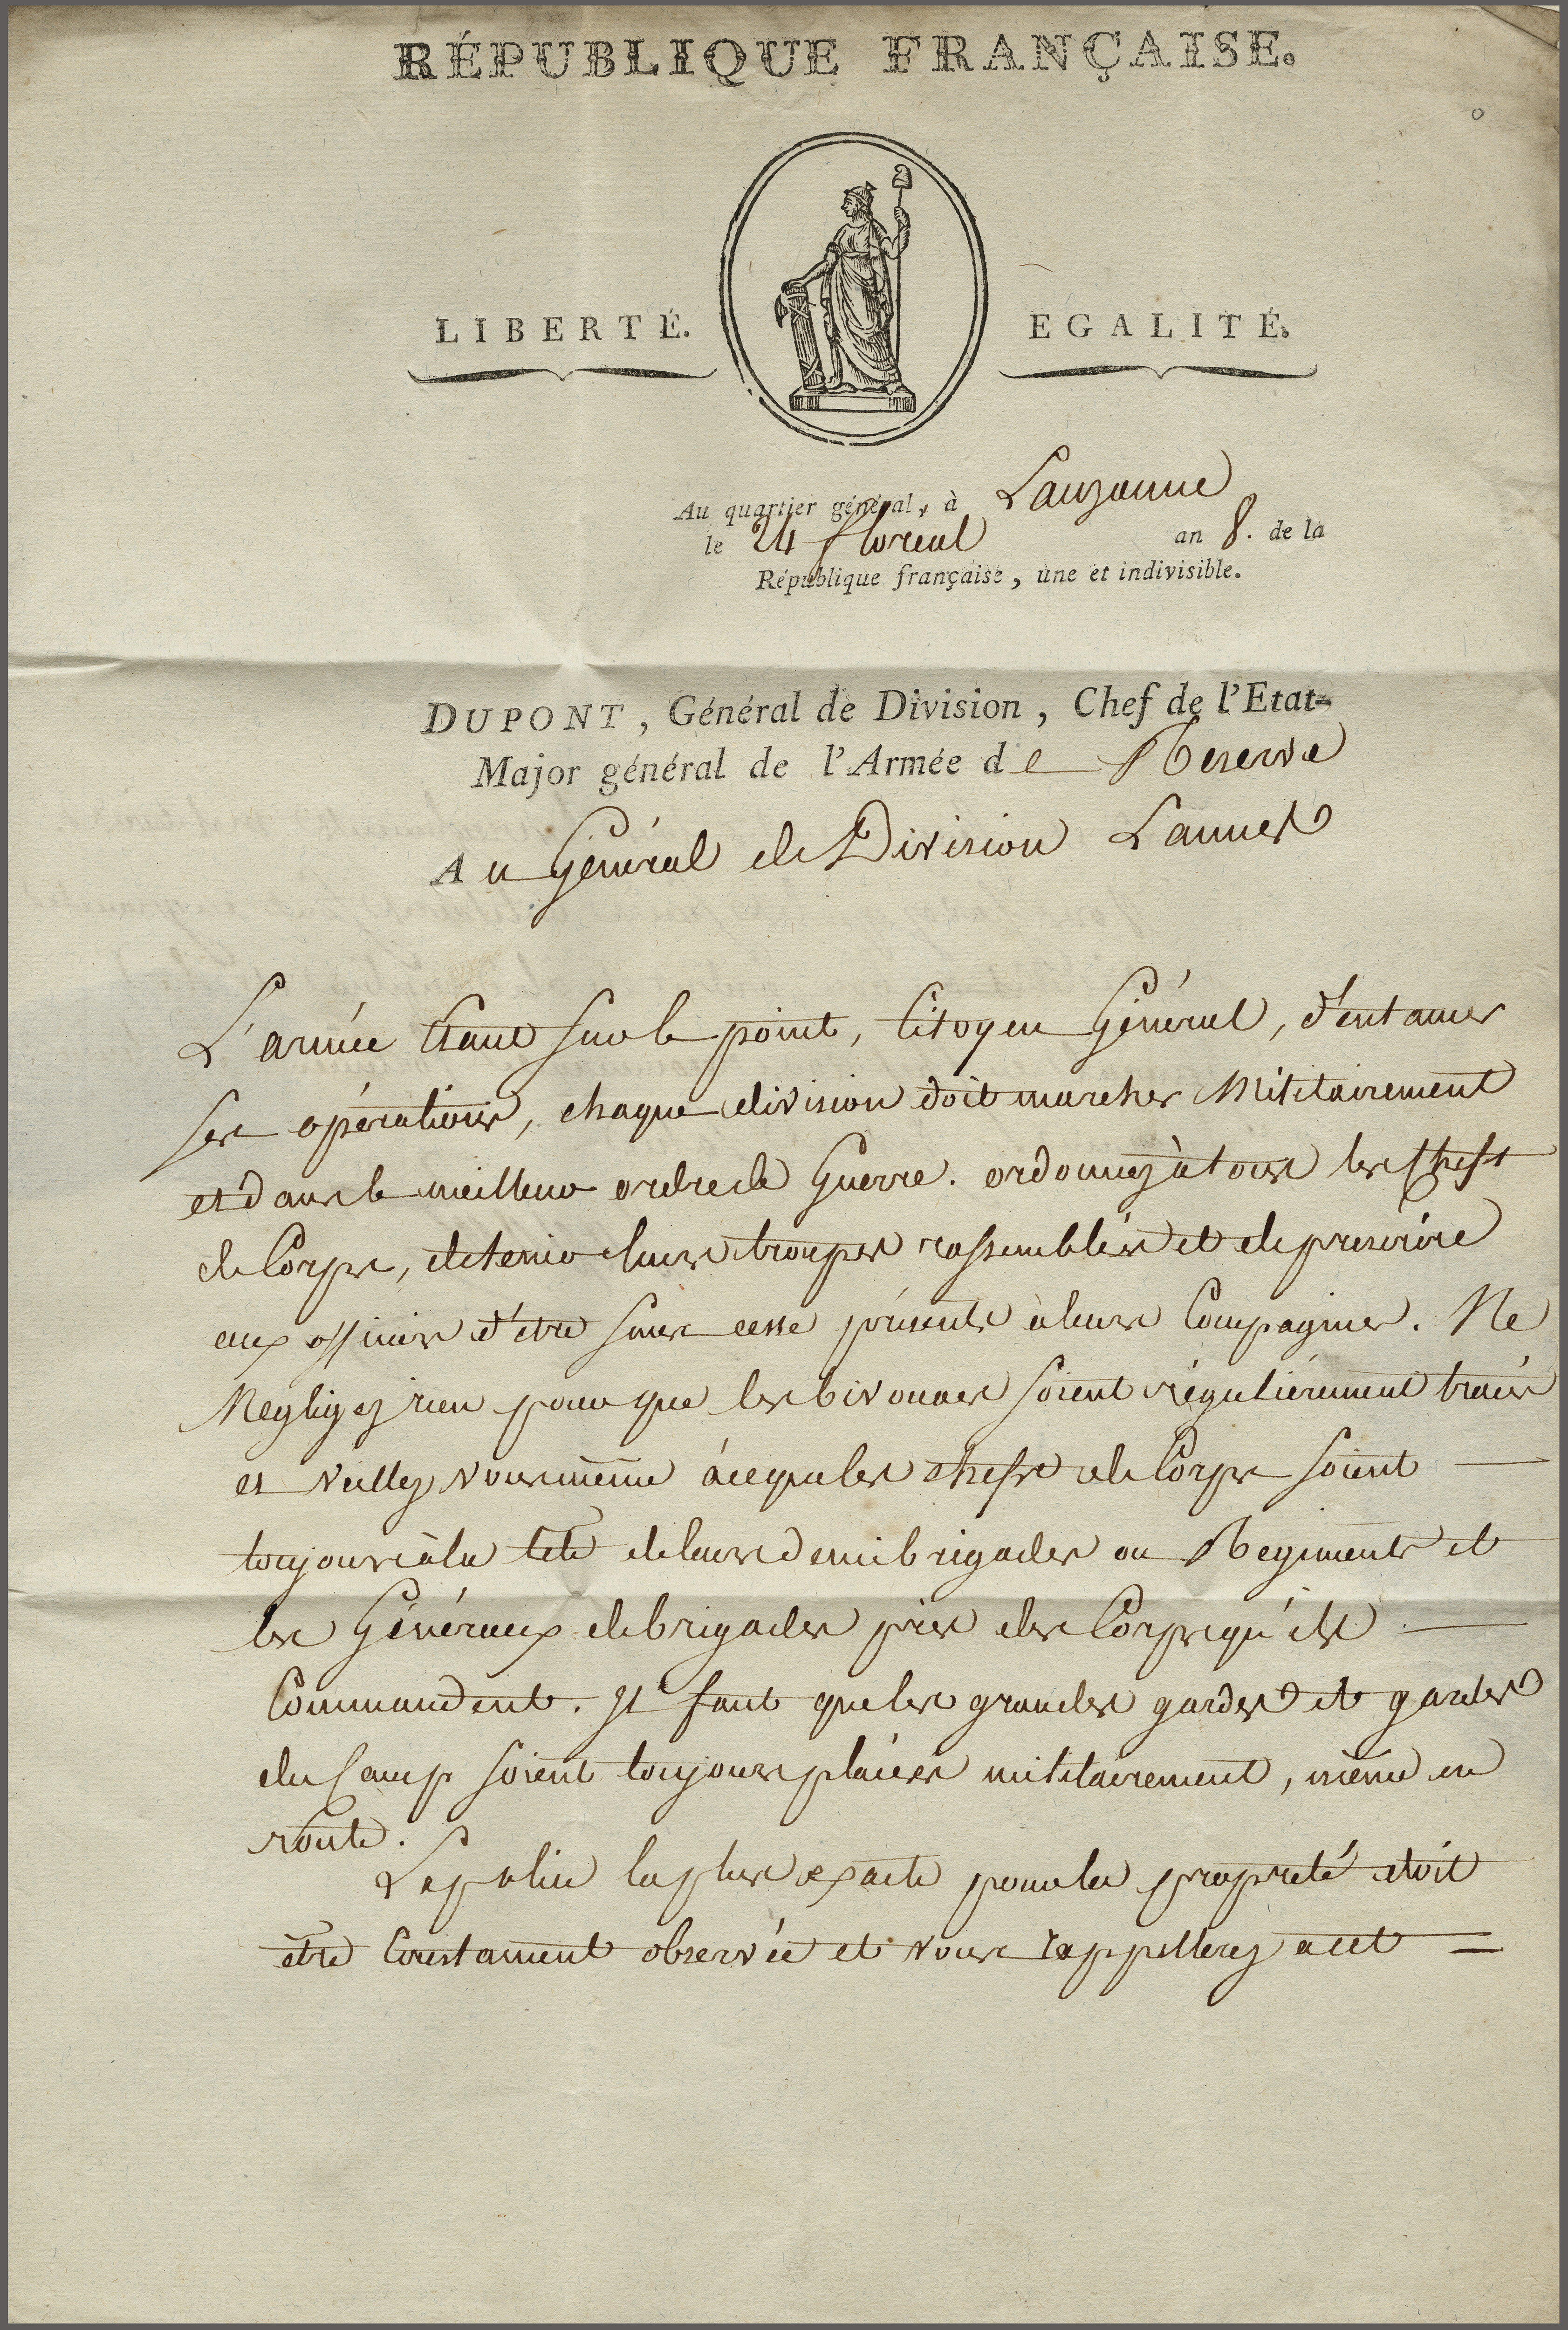 RÉPUBLIQUE FRANÇAISE.
LIBERTÉ. EGALITÉ.
Au quartier général, à Lauzanne
le 24 floreal an 8. de la
République française, une et indivisible.
DUPONT, Général de Division, Chef de l'Etat-
Major général de l'Armée de Reserve
Au Général de Division Lannes
L'armée étant sur le point, Citoyen Général, d'entamer
ses opérations, chaque division doit marcher Militairement
et dans le meilleur ordre de Guerre. ordonnez à tous les chefs
de Corps, de tenir leurs troupes rassemblées et de prescrire
aux officiers d'etre sans cesse présents à leurs Compagnies. Ne
Negligez rien pour que les bivouacs soient réguliérement tracés
et veillez vous même à ce que les chefs de Corps soient
toujours à la tête de leurs demi brigades ou Regiments et
les Généraux de brigades près des Corps qu'ils
Commandent. Il faut que les grandes gardes et gardes
du Camp soient toujours placées militairement, même en
route.
La police la plus exacte pour la propreté doit
être Constament observée et vous rappellerez a cet